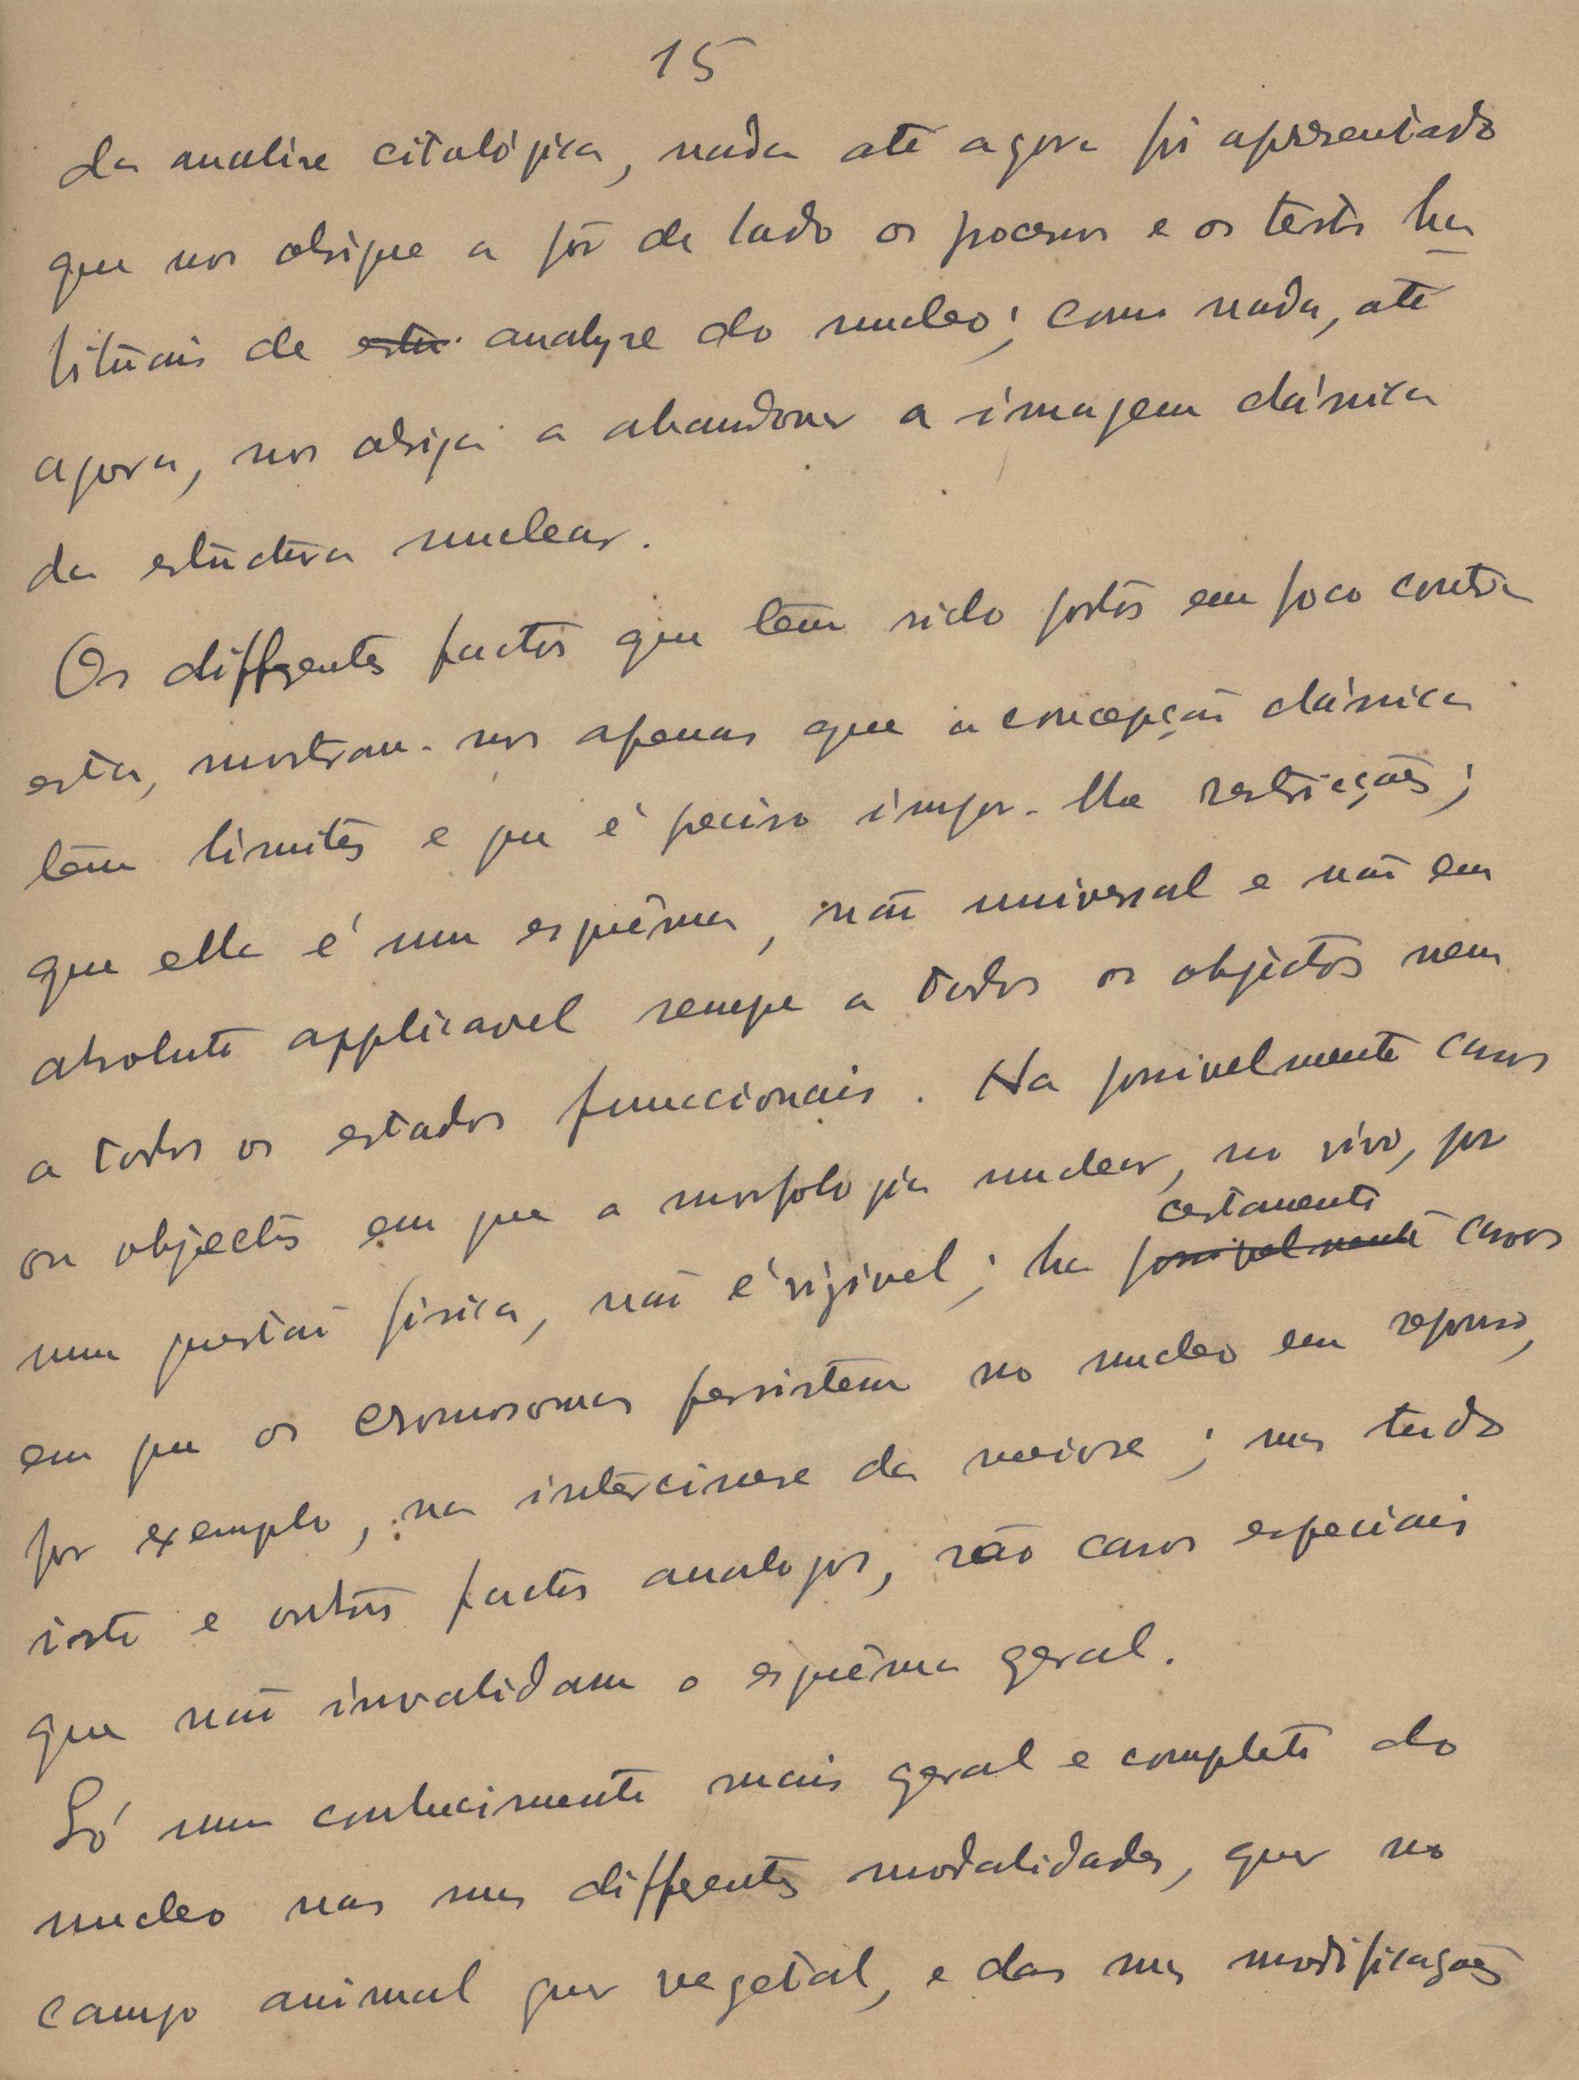 15
da analise citológica, nada até agora foi apresentado
que nos obrigue a pôr de lado os processos e os tests ha
bituais de estu analyse do nucleo; como nada, até
agora, nos obriga a abandonar a imagem clássica
da estructura nuclear.
Os differentes factos que têm sido postos em foco contra
esta, mostram-nos apenas que a concepção clássica
tem limites e que é preciso impor-lhe restricções;
que ella é um esquêma, não universal e não em
absoluto applicavel sempre a todos os objectos nem
a todos os estados funccionais. Ha possivelmente casos
ou objectos em que a morfologia nuclear, no vivo, por
certamente
uma questão fisica, não é visivel; ha possivelmente casos
em que os cromosomas persistem no nucleo em repouso,
por exemplo, na intercinese da meiose; mas tudo
isto e outros factos analogos, são casos especiais
que não invalidam o esquêma geral.
Só um conhecimento mais geral e completo do
nucleo nas suas differentes modalidades, quer no
campo animal quer vegetal, e das suas modificações